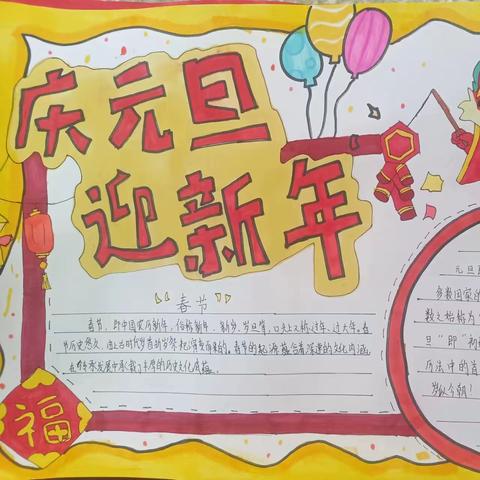 庆元旦
迎新年
"春节"
春节,即中国农历新年,俗称新年、新岁、岁旦等,口头上又称过年、过大年。春
节历史悠久,由上古时代岁首祈岁祭祀演变而来的。春节的起源蕴含着深邃的文化内涵,
在传承发展中承载了丰厚的历史文化底蕴。
福
元旦
多数国家的
数之始称为"
旦"即"初
历法中的首
岁似今朝!